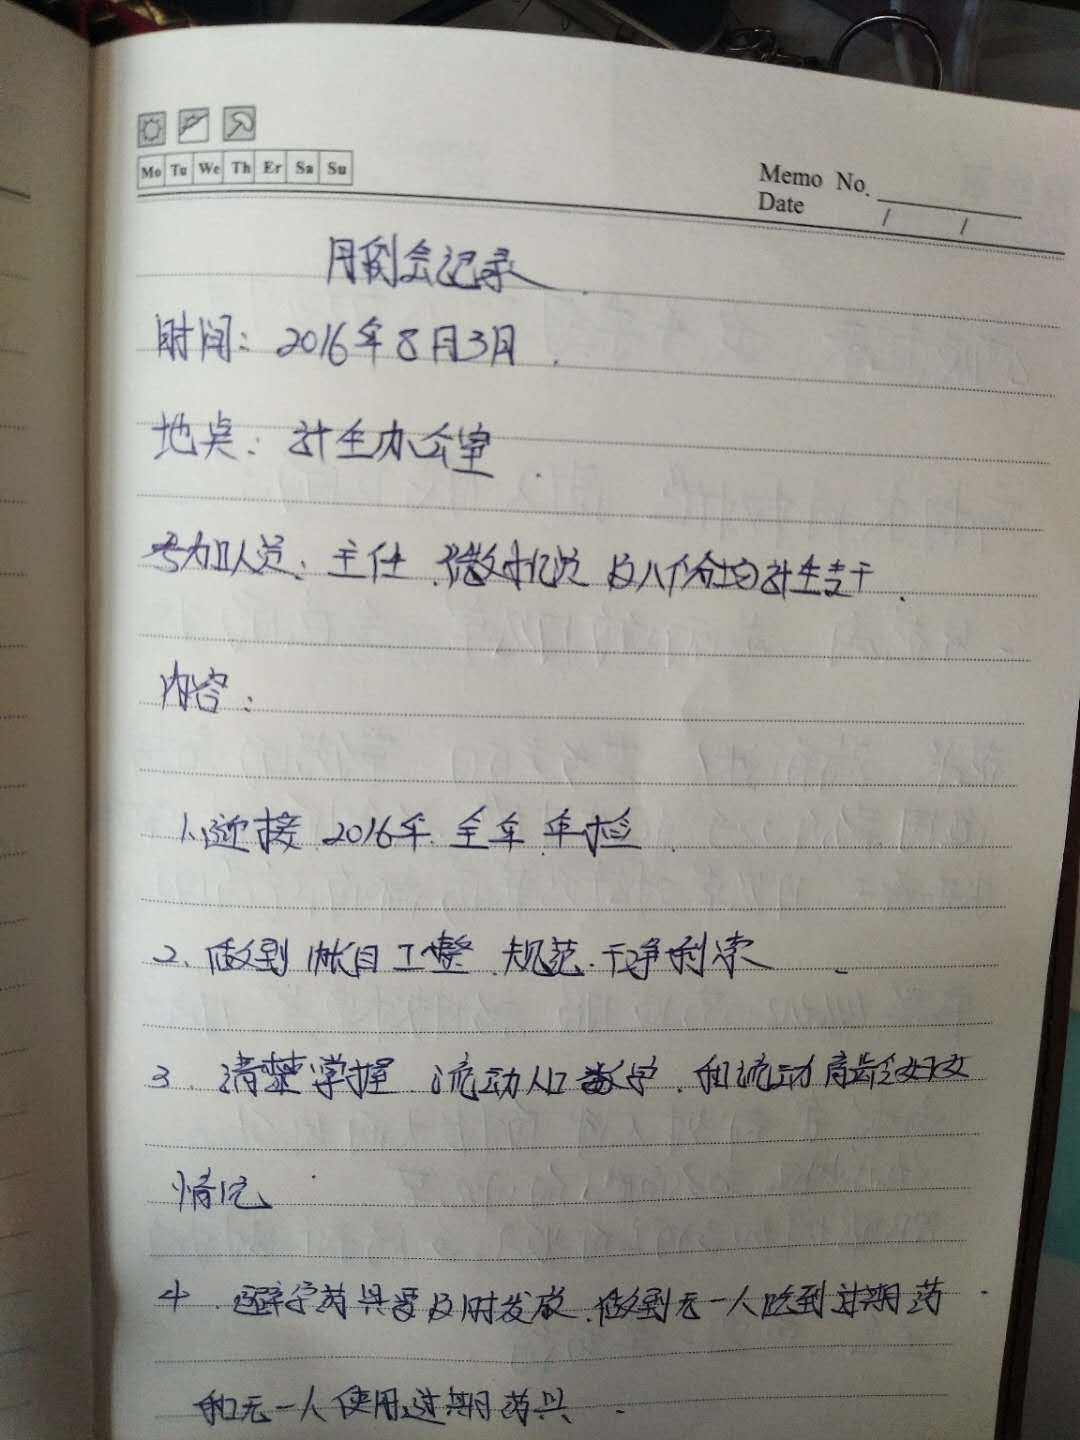 Mo Tu We Th Er Sa Su
Memo No.
Date / /
月例会记录
时间：2016年8月3日
地点：计生办公室
参加人员：主任 微机员 及八个 计生专干
内容：
1、迎接2016年全年年检
2、做到帐目工整、规范、干净利索
3、清楚掌握流动人口数字、和流动育龄妇女
情况
4、避孕药具要及时发放、做到无一人吃到过期药
和无一人使用过期药具